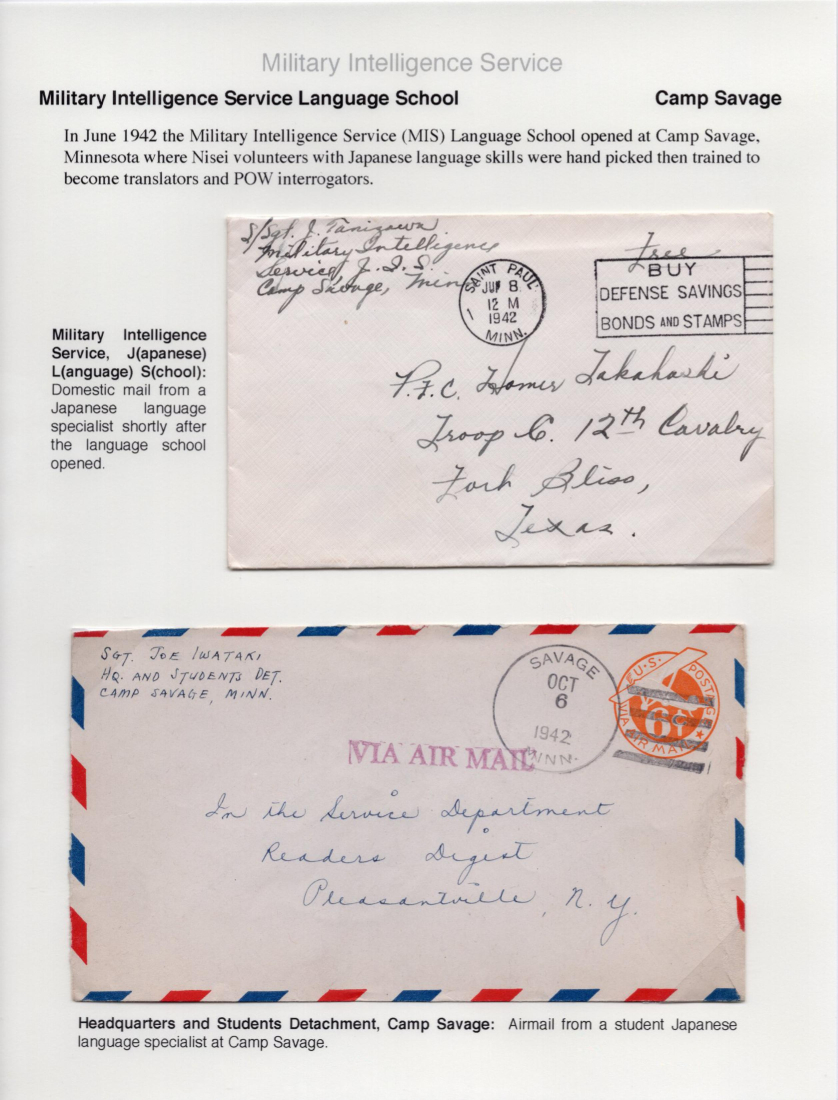 Military Intelligence Service
Military Intelligence Service Language School Camp Savage
In June 1942 the Military Intelligence Service (MIS) Language School opened at Camp Savage,
Minnesota where Nisei volunteers with Japanese language skills were hand picked then trained to
become translators and POW interrogators.
S/Sgt. J. Tanizawa
Military Intelligence
Service, J. L. S.
Camp Savage, Minn
SAINT PAUL
1
JUN 8
12 M
1942
MINN.
Free
BUY
DEFENSE SAVINGS
BONDS AND STAMPS
P.F.C. Homer Takahashi
Troop C. 12th Cavalry
Fort Bliss,
Texas.
Military Intelligence
Service, J(apanese)
L(anguage) S(chool):
Domestic mail from a
Japanese language
specialist shortly after
the language school
opened.
SGT. JOE IWATAKI
HQ. AND STUDENTS DET.
CAMP SAVAGE, MINN.
SAVAGE
OCT
6
1942
MINN.
U.S. POSTAGE
6¢
VIA AIR MAIL
VIA AIR MAIL
In the Service Department
Readers Digest
Pleasantville, N.Y.
Headquarters and Students Detachment, Camp Savage: Airmail from a student Japanese
language specialist at Camp Savage.